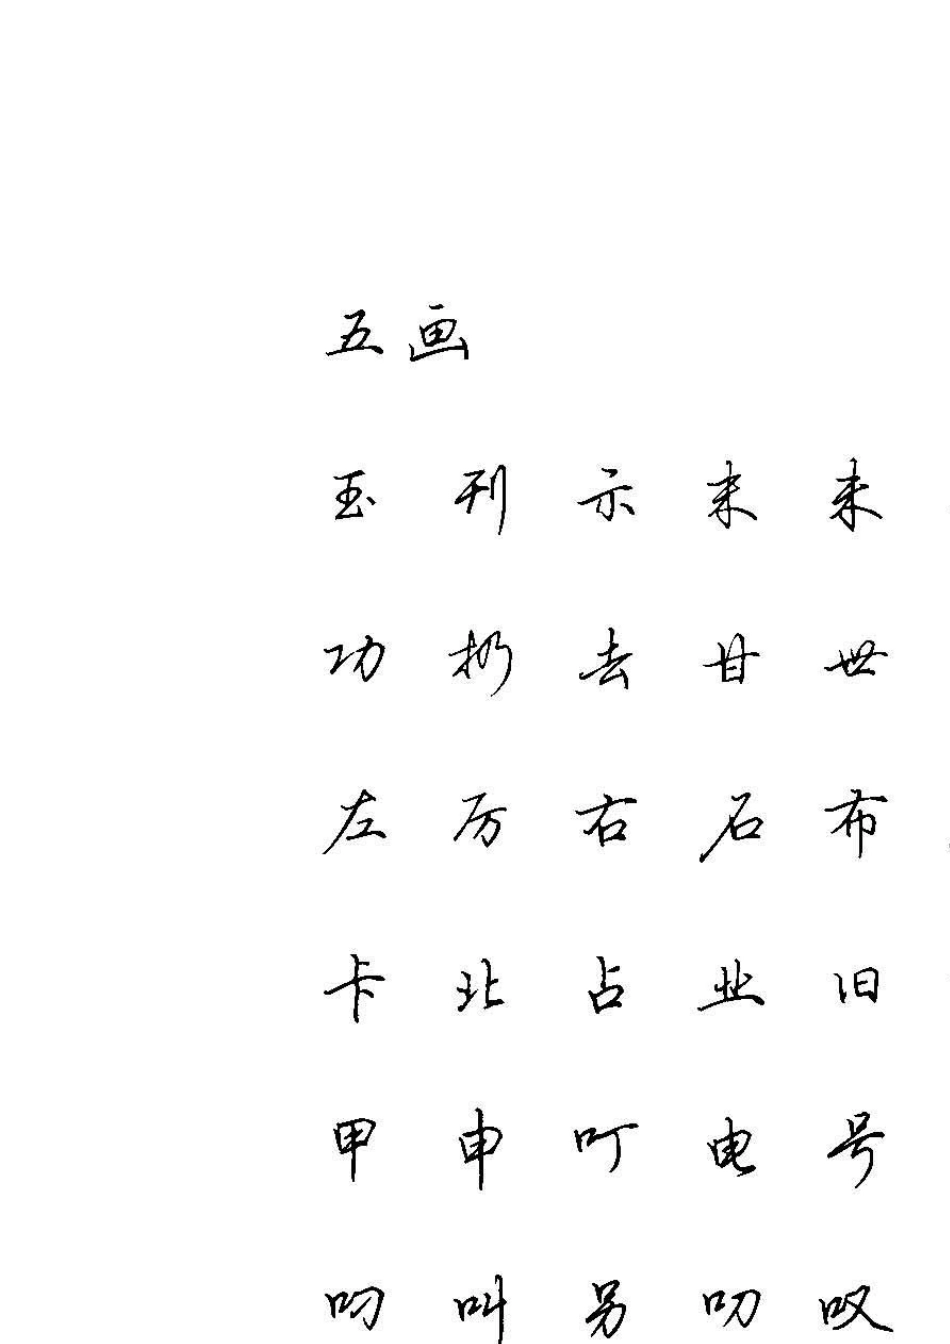 五画
玉 刊 示 末 未
功 扔 去 甘 世
左 厉 右 石 布
卡 北 占 业 旧
甲 申 叮 电 号
叼 叫 另 叨 叹